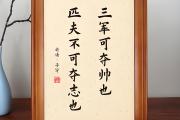 三军可夺帅也
匹夫不可夺志也